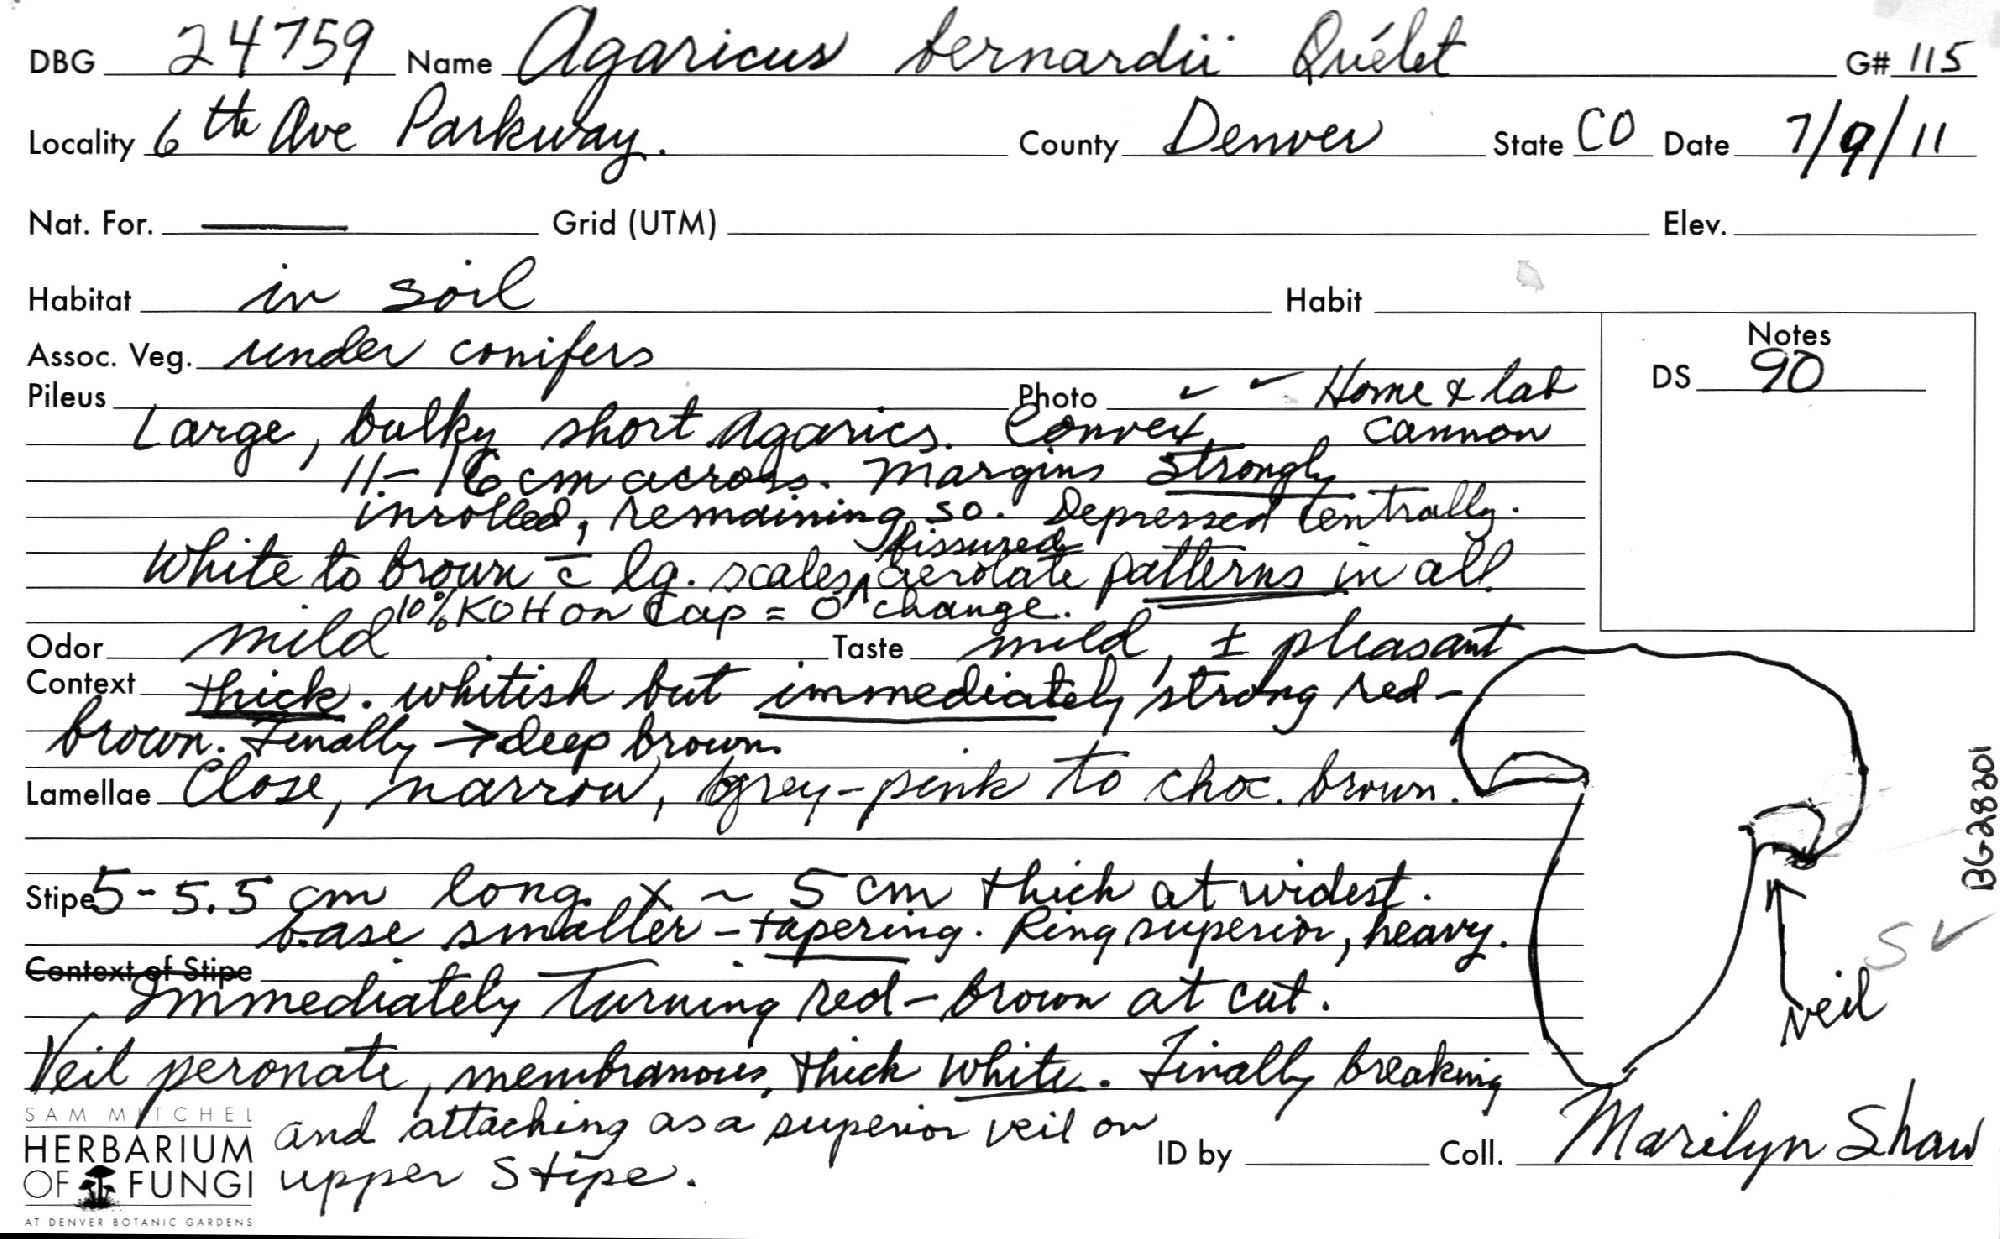 DBG 24759 Name Agaricus bernardii Quélet G# 115
Locality 6th Ave Parkway. County Denver State CO Date 7/9/11
Nat. For. — Grid (UTM) Elev.
Habitat in soil Habit
Assoc. Veg. under conifers
Notes
DS 90
Pileus Photo ✓ ✓ Home & lab
Large, bulky short agarics. Convex, cannon
11-16 cm across. Margins strongly
inrolled, remaining so. Depressed centrally.
fissured
White to brown c̄ lg. scales, ^ aerolate patterns in all.
10% KOH on cap = 0 change.
Odor mild Taste mild, ± pleasant
Context thick. whitish but immediately strong red-
brown. Finally → deep brown.
Lamellae Close, narrow, grey-pink to choc. brown.
Stipe 5-5.5 cm long x ~ 5 cm thick at widest.
base smaller - tapering. Ring superior, heavy.
Context of Stipe
Immediately turning red-brown at cut.
Veil peronate, membranous, thick white. Finally breaking
and attaching as a superior veil on
upper stipe.
veil
S ✓
BG28301
SAM MITCHEL
HERBARIUM
OF FUNGI
AT DENVER BOTANIC GARDENS
ID by Coll. Marilyn Shaw